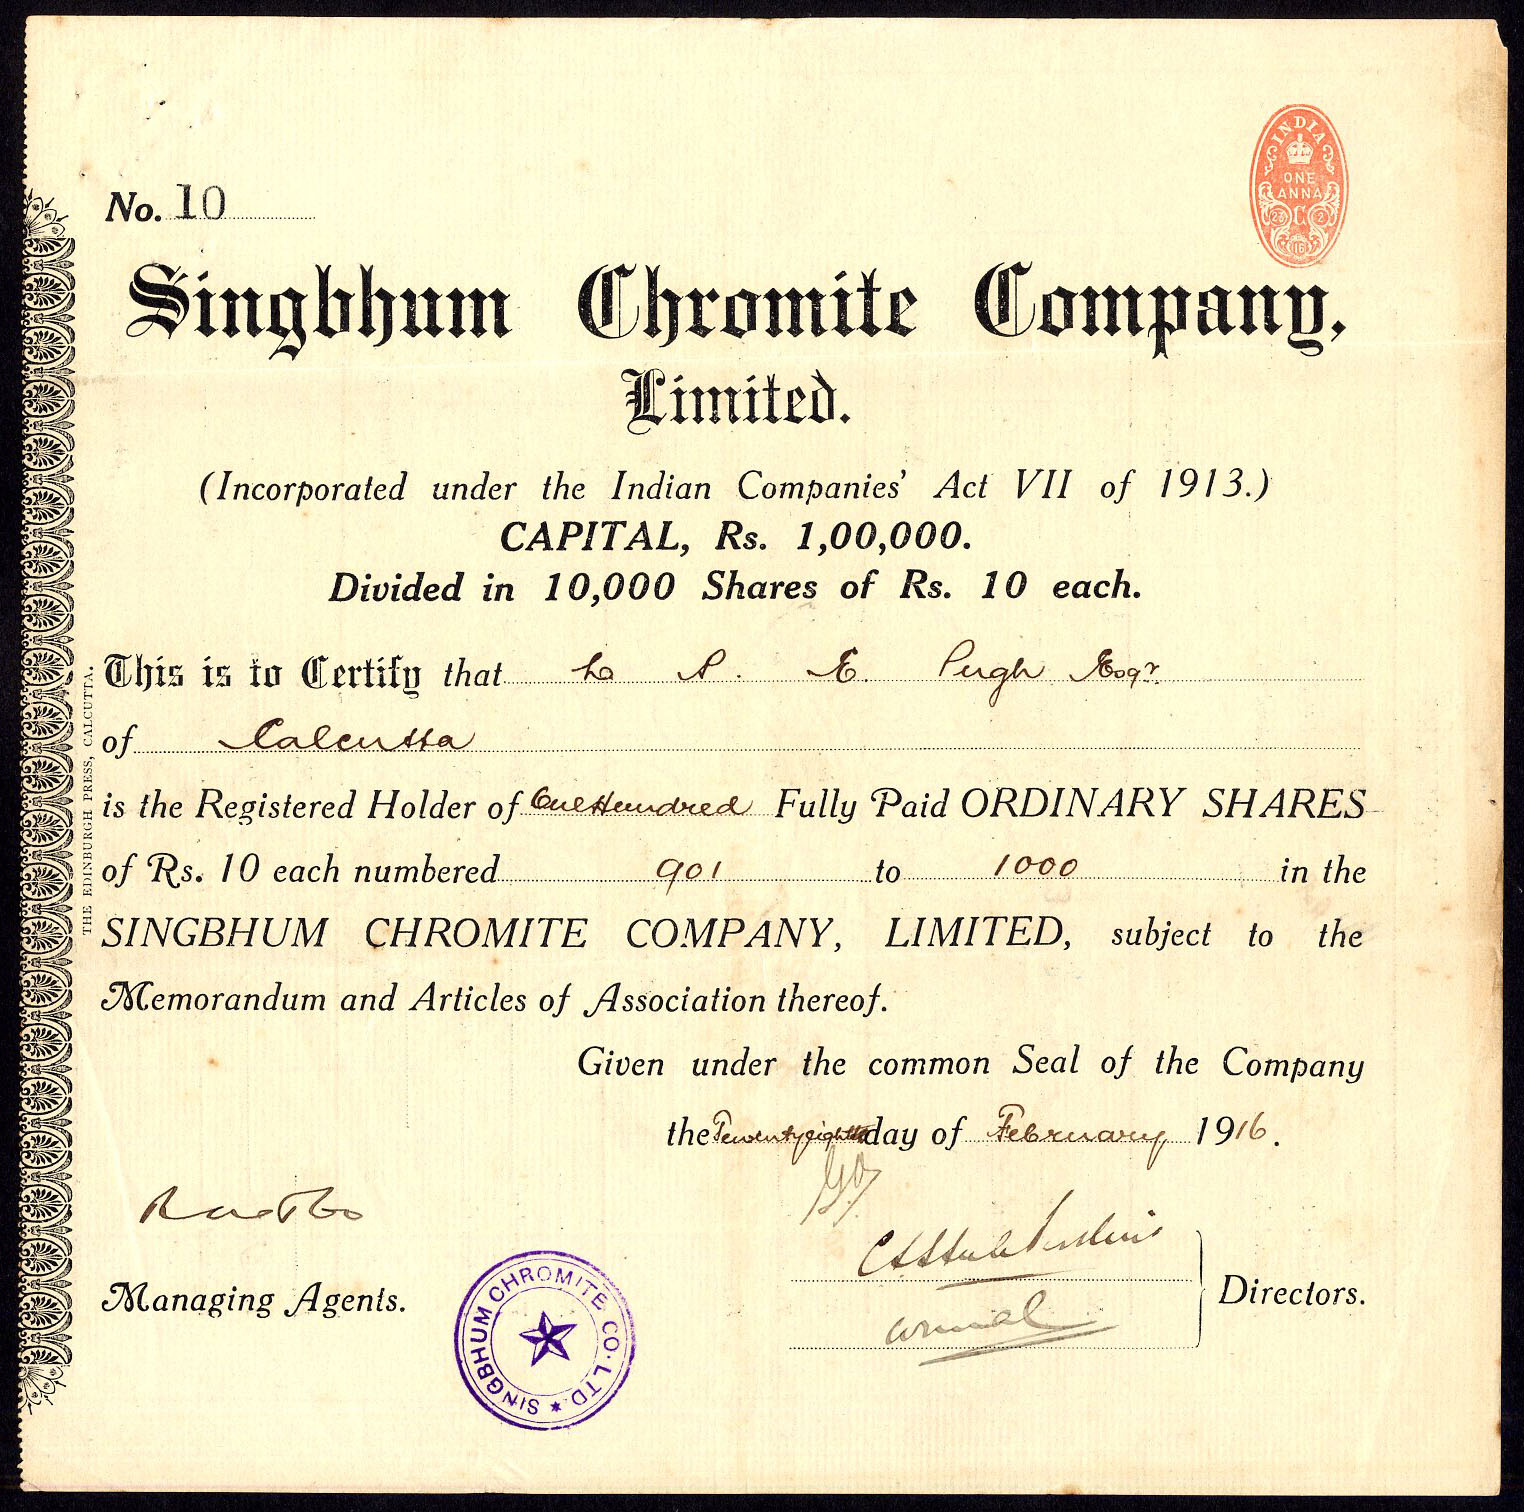 INDIA
ONE
ANNA
23 C 2
16
No. 10
Singbhum Chromite Company,
Limited.
(Incorporated under the Indian Companies' Act VII of 1913.)
CAPITAL, Rs. 1,00,000.
Divided in 10,000 Shares of Rs. 10 each.
This is to Certify that L. P. E. Pugh Esqr.
of Calcutta
is the Registered Holder of One Hundred Fully Paid ORDINARY SHARES
of Rs. 10 each numbered 901 to 1000 in the
SINGBHUM CHROMITE COMPANY, LIMITED, subject to the
Memorandum and Articles of Association thereof.
Given under the common Seal of the Company
the Twentyeighth day of February 1916.
Managing Agents.
Directors.
SINGBHUM CHROMITE CO. LTD.
THE EDINBURGH PRESS, CALCUTTA.